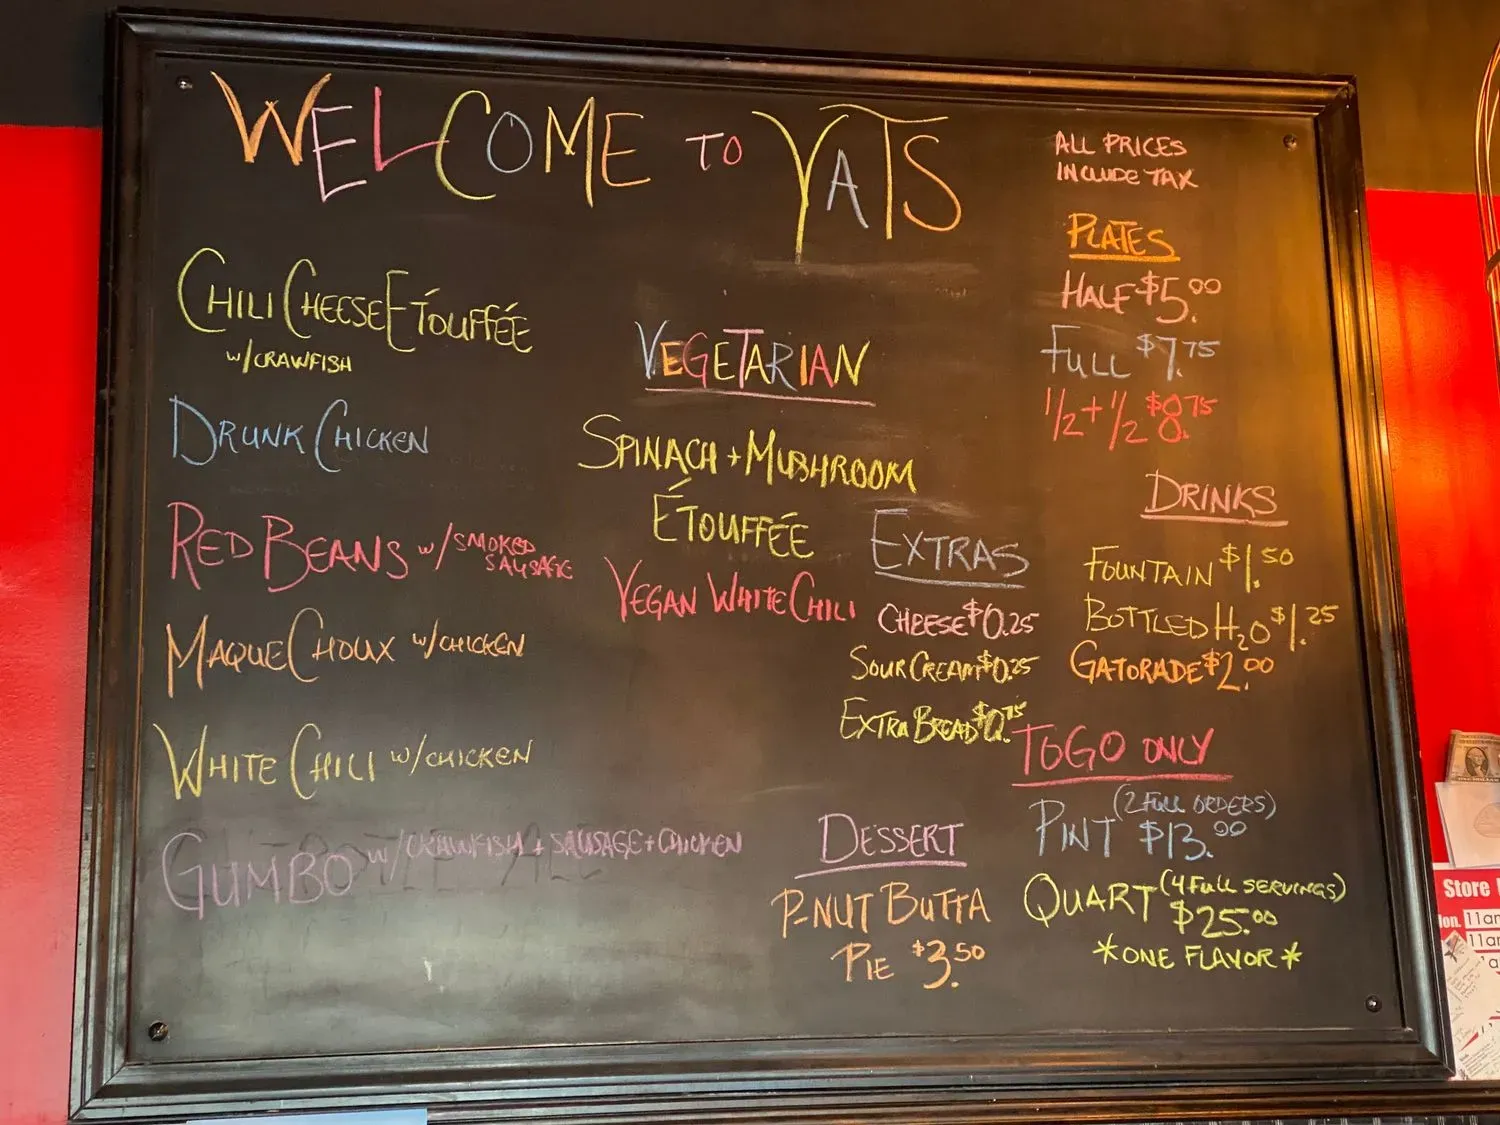 WELCOME TO YATS
CHILI CHEESE ÉTOUFFÉE
W/CRAWFISH
DRUNK CHICKEN
RED BEANS W/SMOKED
SAUSAGE
MAQUE CHOUX W/CHICKEN
WHITE CHILI W/CHICKEN
GUMBO W/CRAWFISH + SAUSAGE + CHICKEN
VEGETARIAN
SPINACH + MUSHROOM
ÉTOUFFÉE
VEGAN WHITE CHILI
EXTRAS
CHEESE $0.25
SOUR CREAM $0.25
EXTRA BREAD $0.75
DESSERT
P-NUT BUTTA
PIE $3.50
ALL PRICES
INCLUDE TAX
PLATES
HALF $5.00
FULL $7.75
1/2 + 1/2 $8.75
DRINKS
FOUNTAIN $1.50
BOTTLED H2O $1.25
GATORADE $2.00
TOGO ONLY
(2 FULL ORDERS)
PINT $13.00
QUART (4 FULL SERVINGS)
$25.00
*ONE FLAVOR*
Store
11am
11am